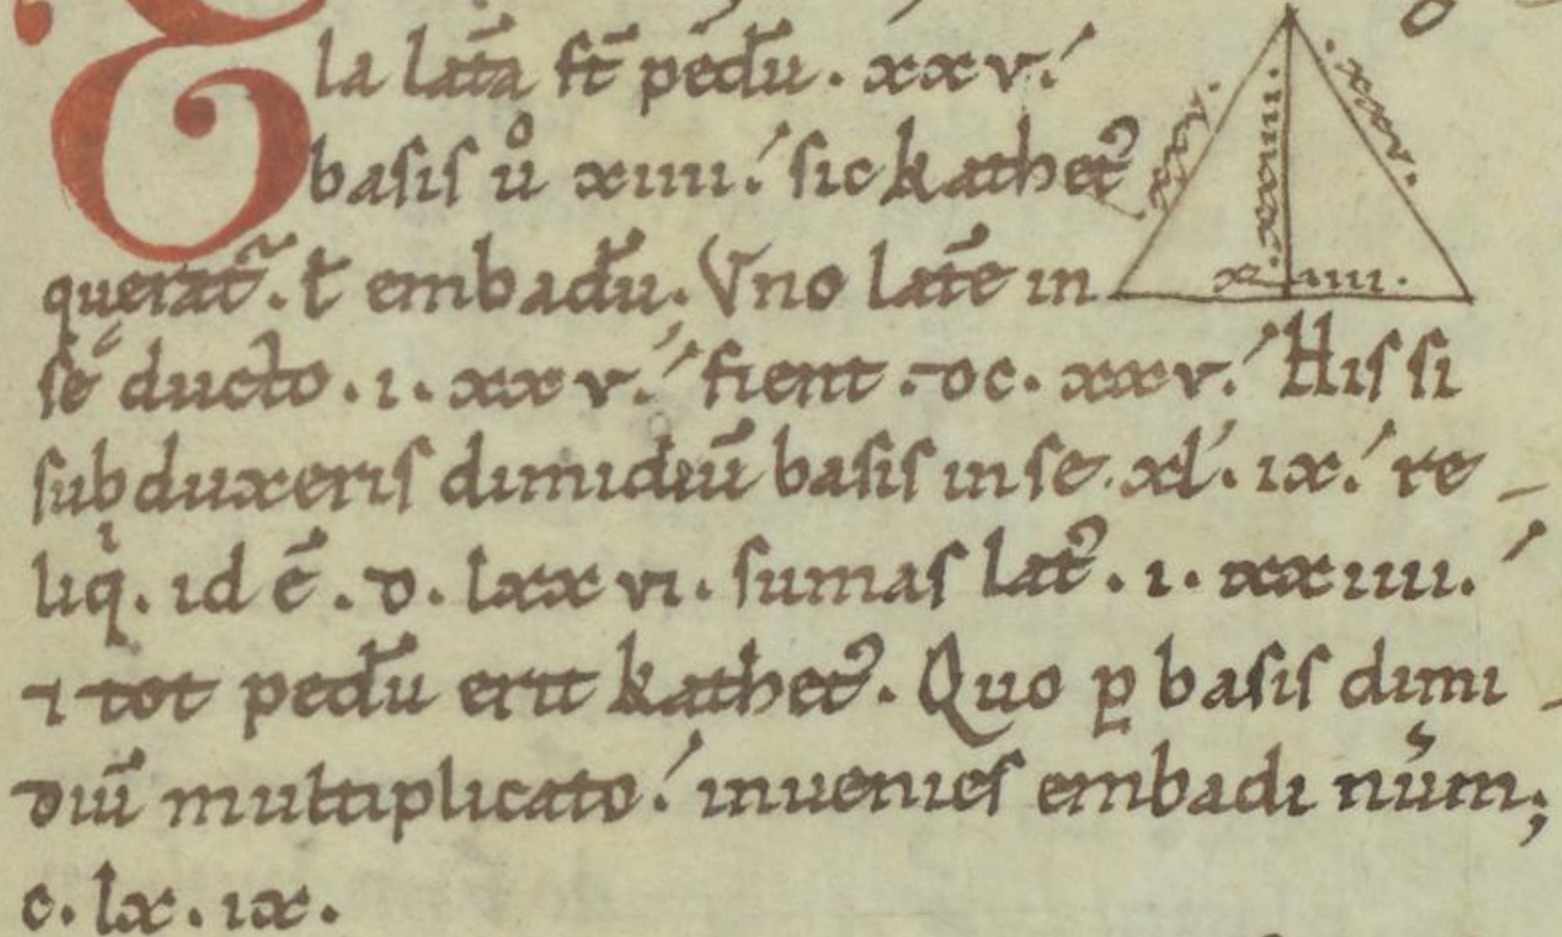 la lat̄a st̄ pedū. xxv.
basis ů xiiii. sic kathet᾽
querat᷑. t̄ embadū. Vno lat̄e in
se ducto. i. xxv. fient. dc. xxv. His si
subduxeris dimidiū basis in se. xl. ix. re
liq̇. id ē. d. lxxvi. sumas lat᾽. i. xxiiii.
⁊ tot pedū erit kathet᾽. Quo ꝑ basis dimi
diū multiplicato. inuenies embadi nūm;
c. lx. ix.
xxv.
xxiiii.
xxv.
xiiii.